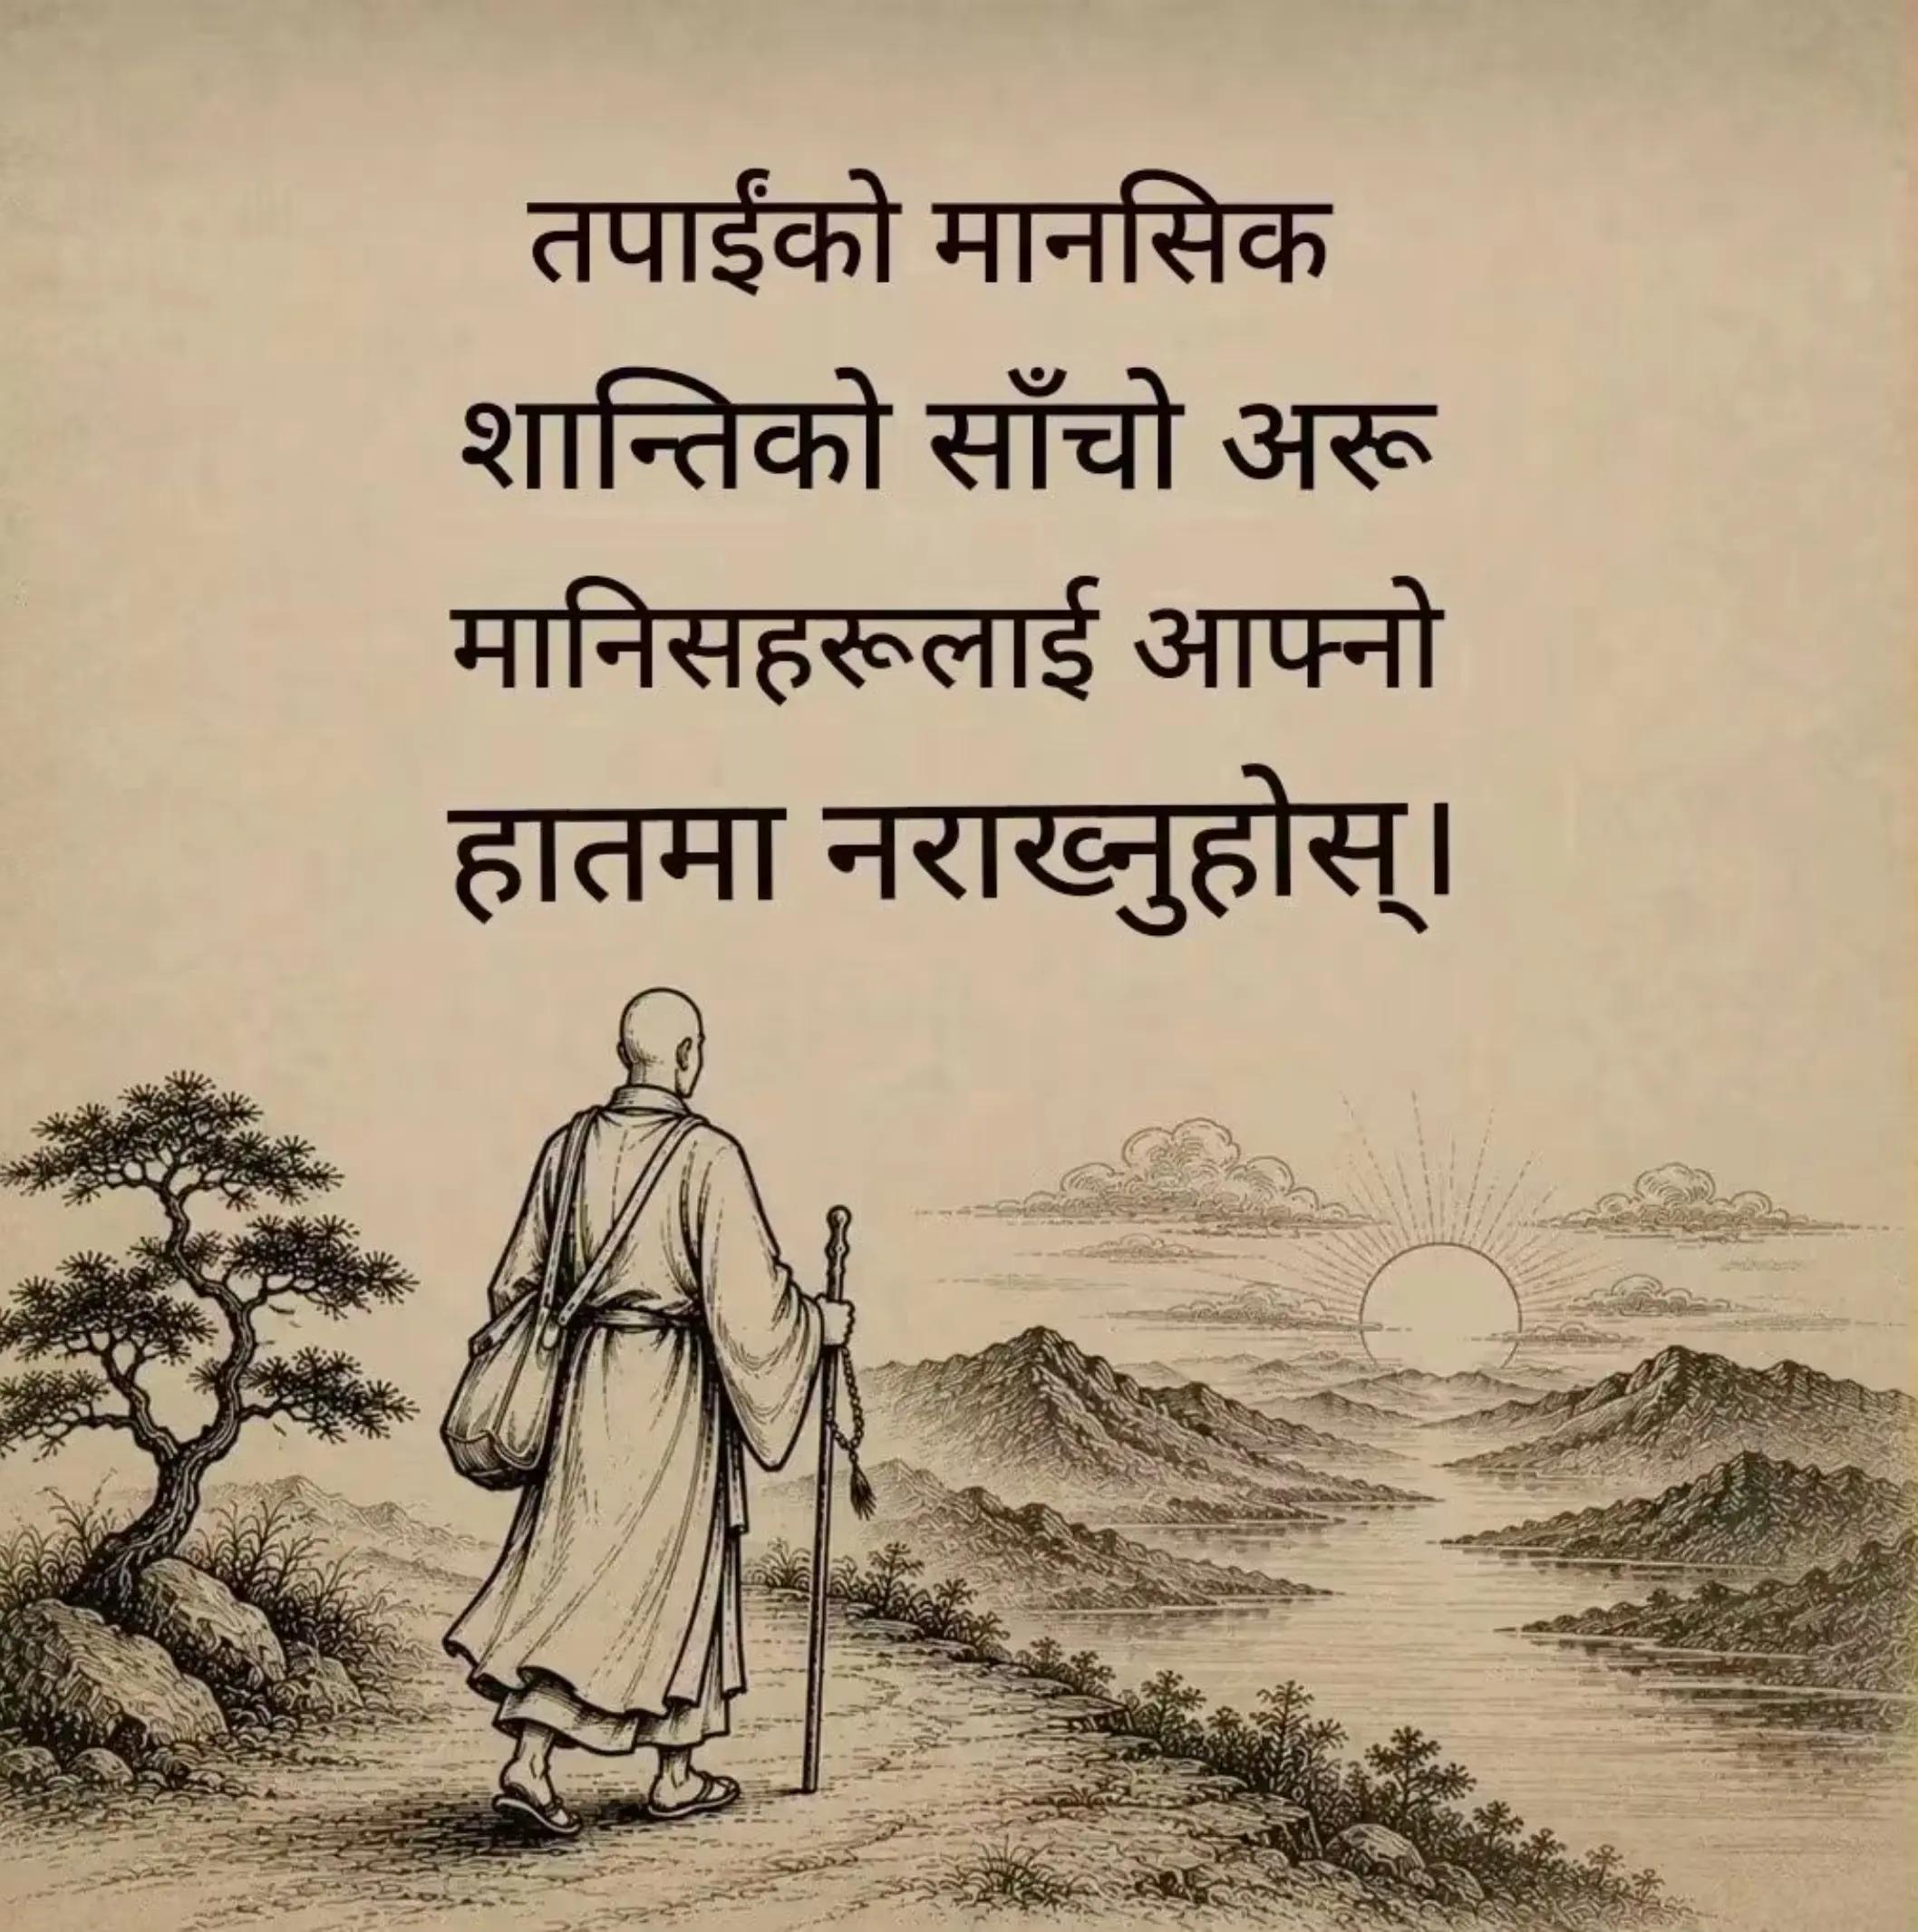 तपाईंको मानसिक
शान्तिको साँचो अरू
मानिसहरूलाई आफ्नो
हातमा नराख्नुहोस्।